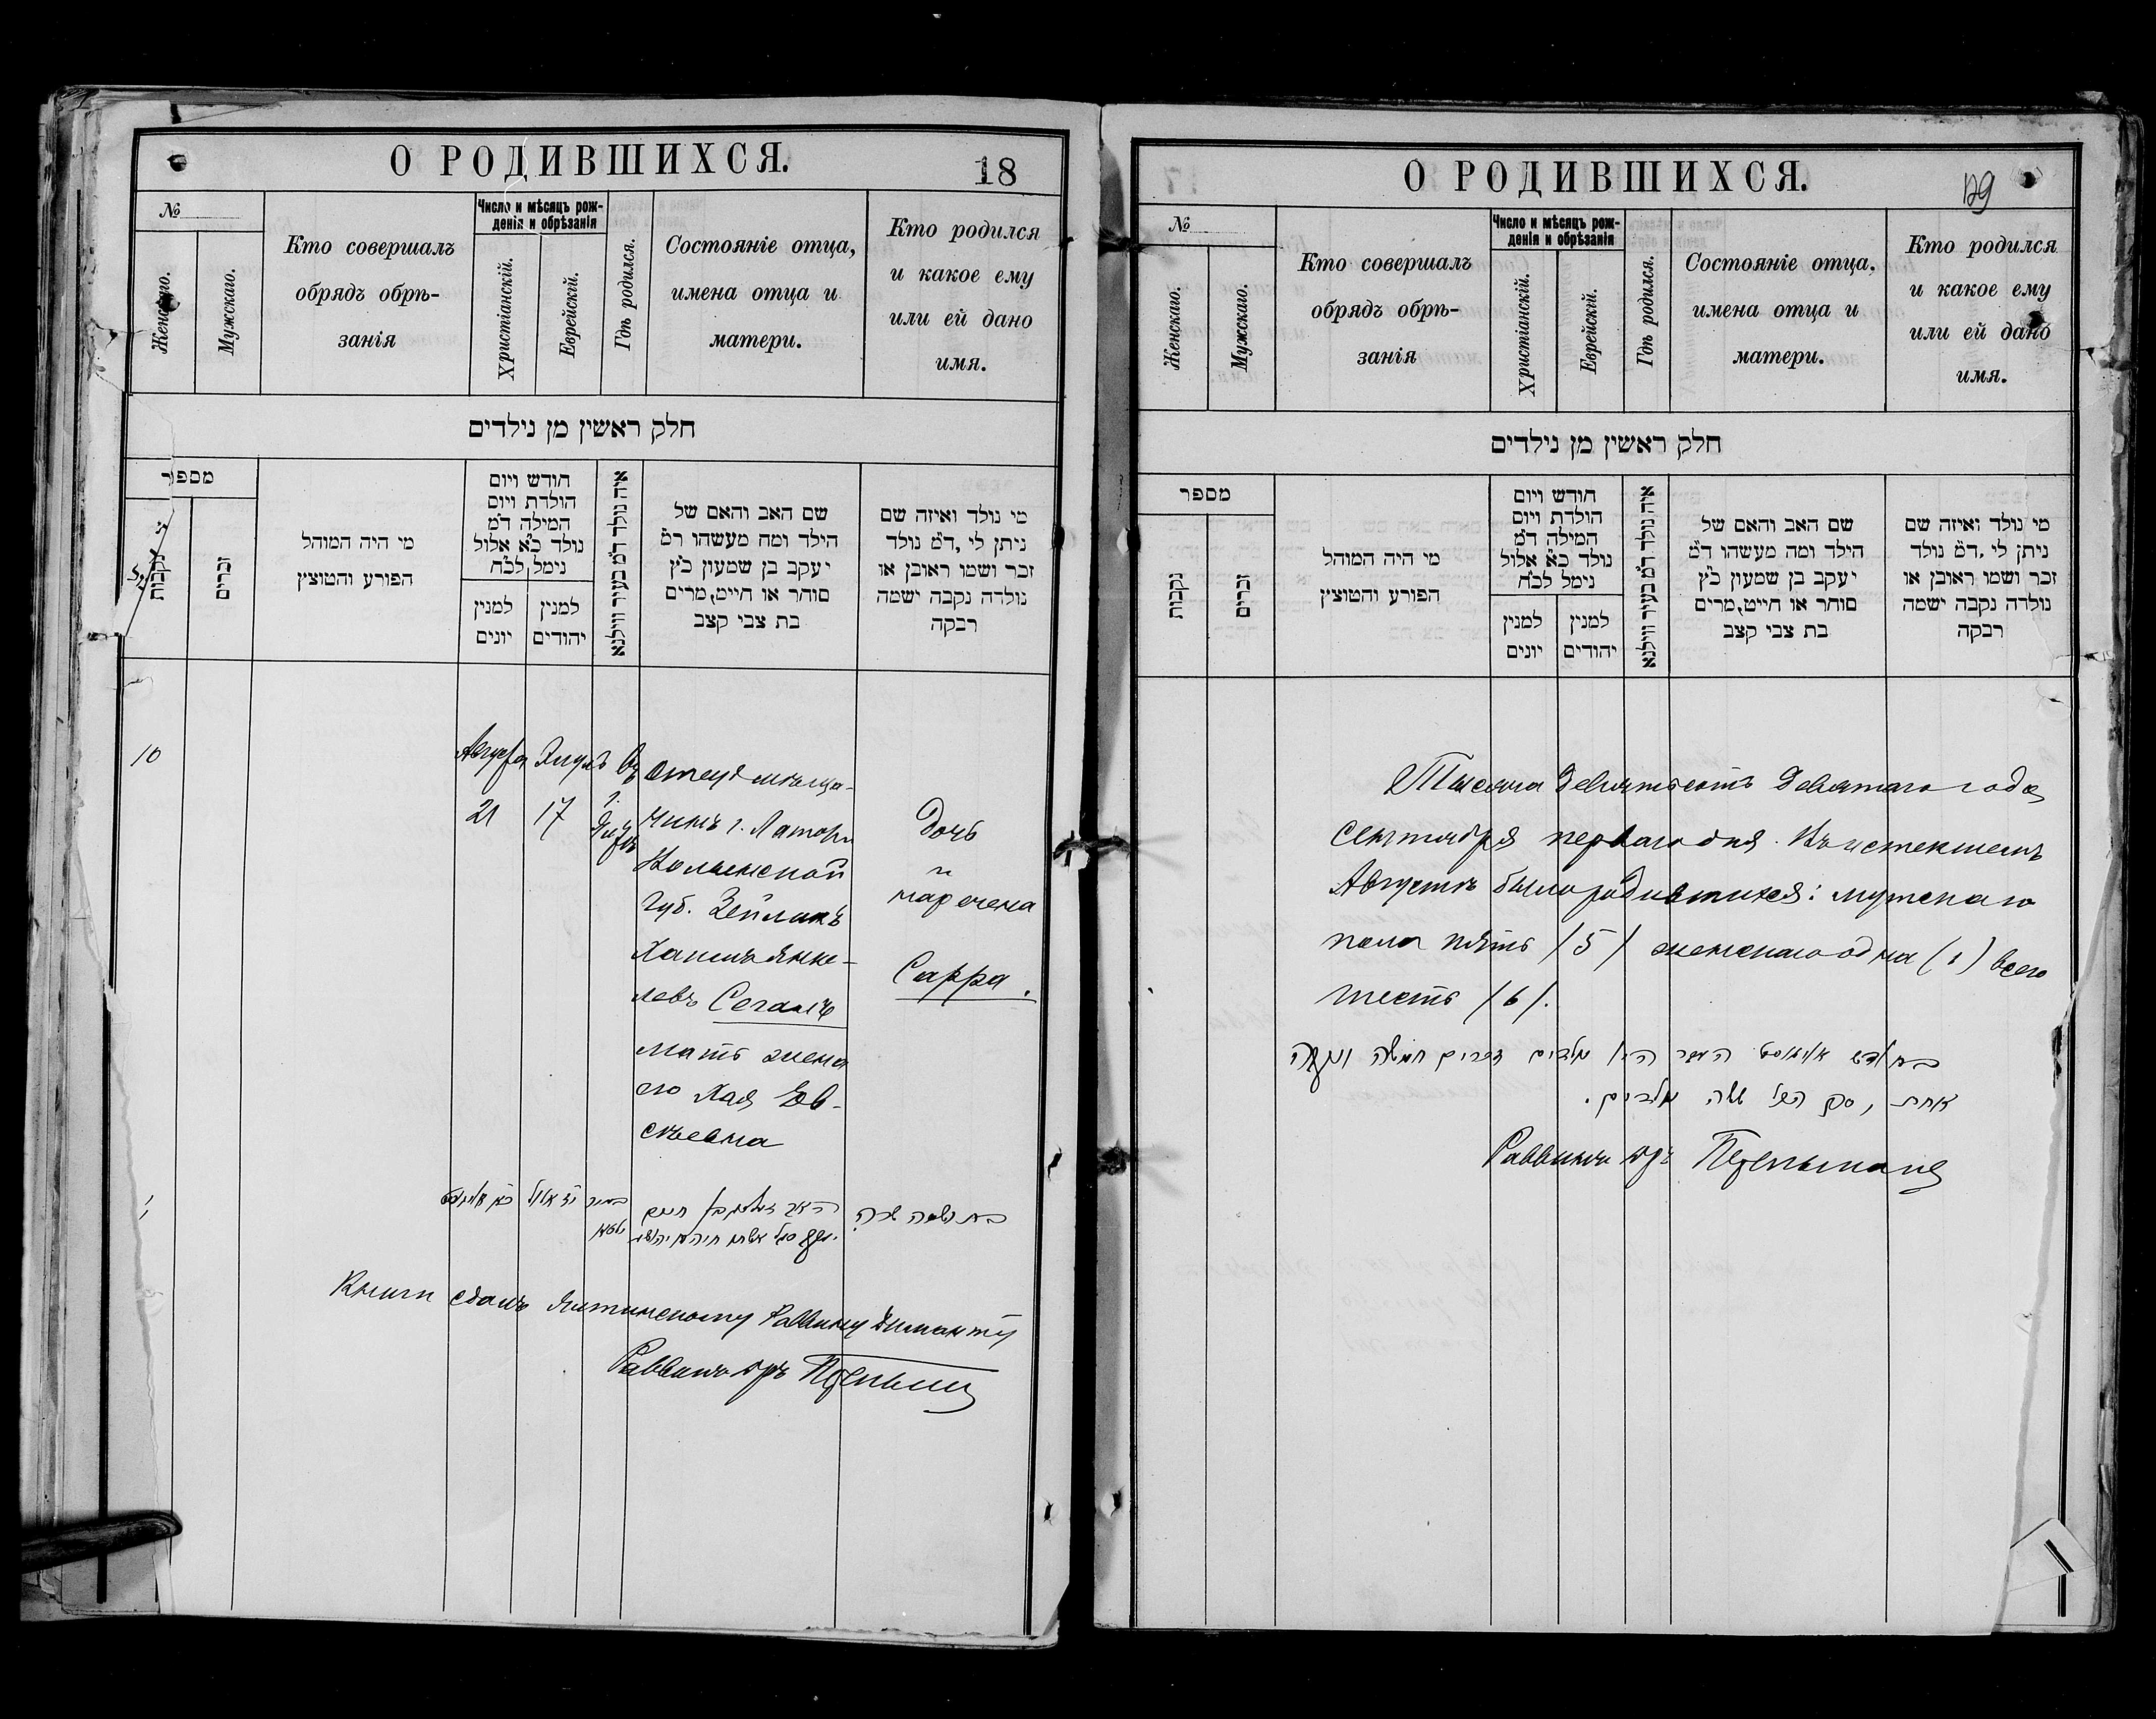 О РОДИВШИХСЯ.
18
№
Женскаго.
Мужскаго.
Кто совершалъ
обрядъ обрѣ-
занія
Число и мѣсяцъ рож-
денія и обрѣзанія
Христіанскій.
Еврейскій.
Гдѣ родился.
Состояніе отца,
имена отца и
матери.
Кто родился
и какое ему
или ей дано
имя.
חלק ראשין מן נילדים
מספר
נקבות
זכרים
מי היה המוהל
הפורע והמוצץ
חודש ויום
הולדת ויום
המילה ד״מ
נולד כ״א אלול
נימל לכ״ח
למנין
יונים
למנין
יהודים
איה נולד ד״מ בעיר ווילנא
שם האב והאם של
הילד ומה מעשהו ד״מ
יעקב בן שמעון כ״ץ
סוחר או חייט,מרים
בת צבי קצב
מי נולד ואיזה שם
ניתן לי ,ד״מ נולד
זכר ושמו ראובן או
נולדה נקבה ישמה
רבקה
10
Августа
21
Элулъ
17
Въ
г.
Отецъ мѣща-
нинъ г.
Волынской
губ.
левъ Сегалъ
мать жена
его Хая Ев-
сѣевна
Дочь
наречена
Сарра.
Книги сдалъ Ялтинскому Раввину
Раввинъ др
О РОДИВШИХСЯ.
№
Женскаго.
Мужскаго.
Кто совершалъ
обрядъ обрѣ-
занія
Число и мѣсяцъ рож-
денія и обрѣзанія
Христіанскій.
Еврейскій.
Гдѣ родился.
Состояніе отца,
имена отца и
матери.
Кто родился
и какое ему
или ей дано
имя.
חלק ראשין מן נילדים
מספר
נקבות
זכרים
מי היה המוהל
הפורע והמוצץ
חודש ויום
הולדת ויום
המילה ד״מ
נולד כ״א אלול
נימל לכ״ח
למנין
יונים
למנין
יהודים
איה נולד ד״מ בעיר ווילנא
שם האב והאם של
הילד ומה מעשהו ד״מ
יעקב בן שמעון כ״ץ
סוחר או חייט,מרים
בת צבי קצב
מי נולד ואיזה שם
ניתן לי ,ד״מ נולד
זכר ושמו ראובן או
נולדה נקבה ישמה
רבקה
Тысяча девятьсотъ девятаго года
сентября перваго дня. Въ истекшемъ
Августѣ было родившихся: мужскаго
пола пять /5/ женскаго одна (1) всего
шесть /6/.
אחת, סך הכל ששה נולדים.
Раввинъ др